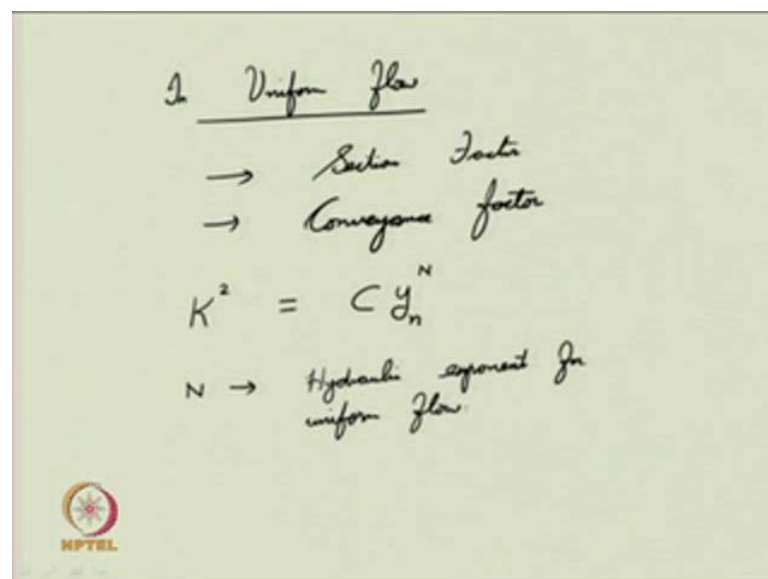 In Uniform Flow
→ Section Factor
→ Conveyance factor
K² = C yₙᴺ
N → Hydraulic exponent for
uniform flow.
NPTEL